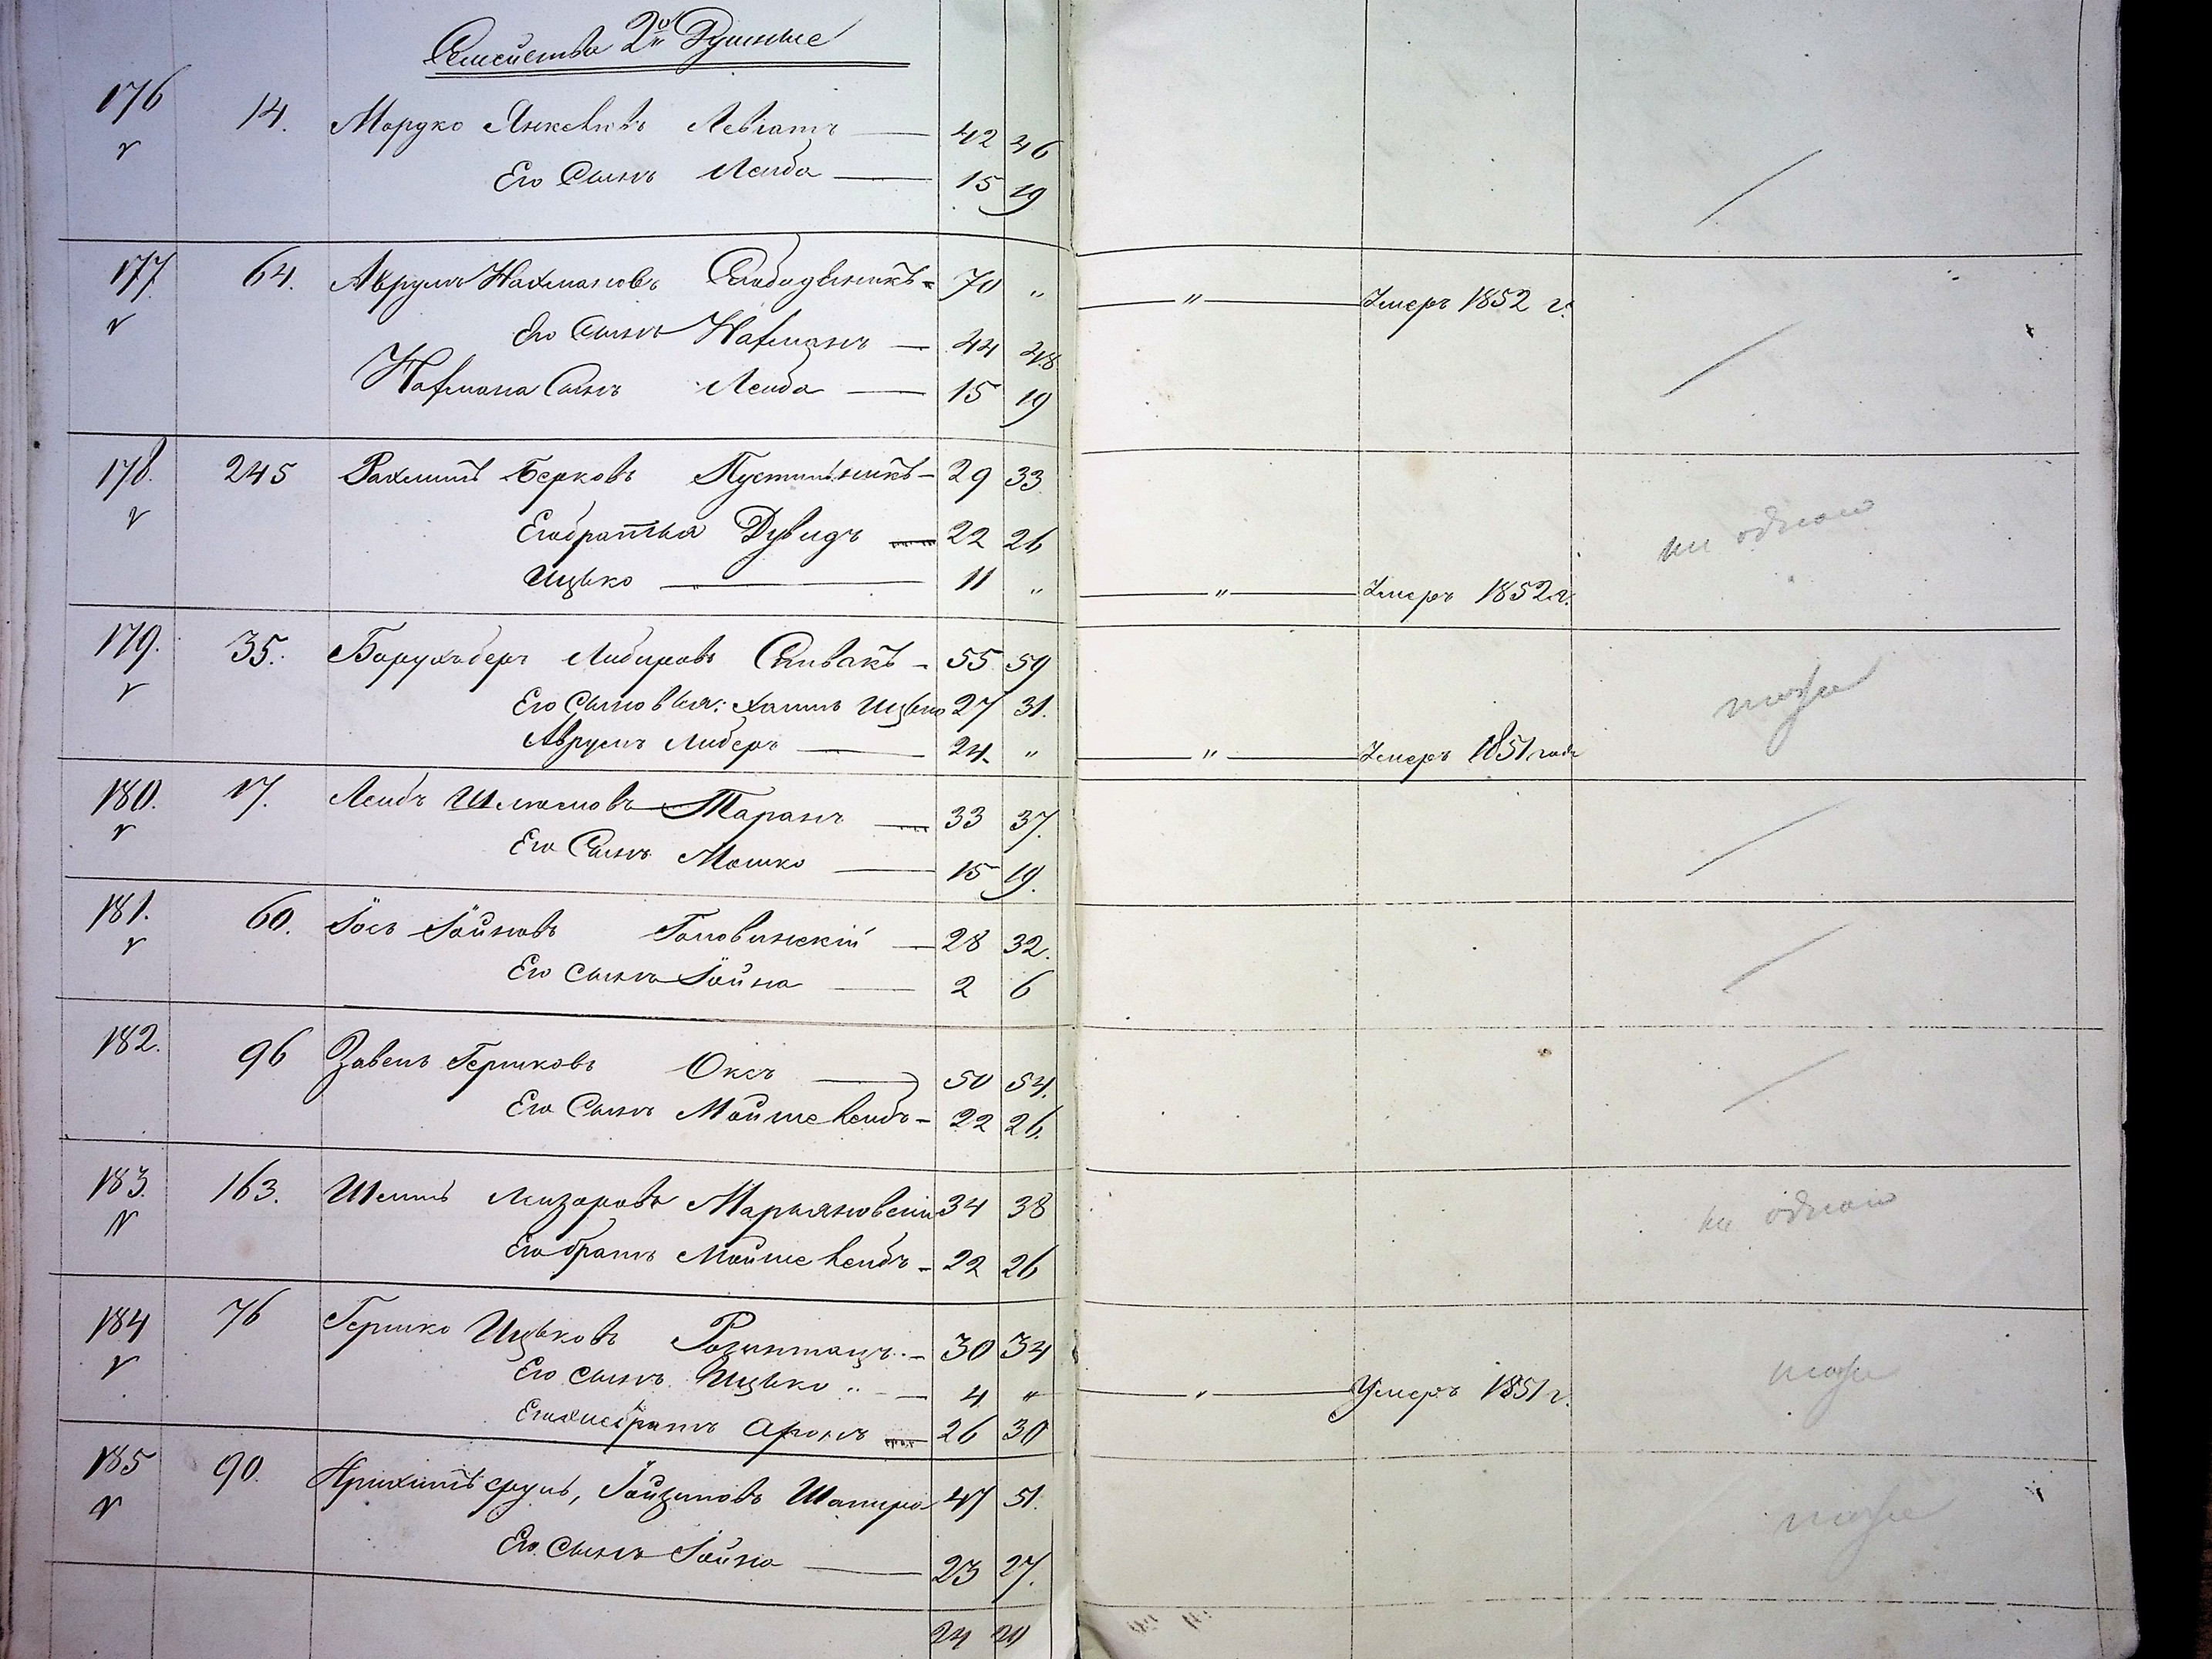 Семейства 2х Душные
176 14. Мордко Янкелевъ Левіатъ 42 46
Его Сынъ Лейба 15 19
177 64. Аврумъ Нахмановъ Слободяникъ 70 " " Умеръ 1852 г.
Его Сынъ Нахманъ 44 48
Нахмана Сынъ Лейба 15 19
178. 245 Рахмиль Берковъ Пустильникъ 29 33 ни одного
Его братья Дувидъ 22 26
Ицько 11 " " Умеръ 1852 г.
179. 35. Борухъ беръ Либеровъ Спивакъ 55 59 тоже
Его Сыновья: Хаимъ Ицько 27 31.
Аврумъ Либеръ 24. " " Умеръ 1851 года
180. 17. Лейбъ Шлюмовъ Таранъ 33 37.
Его Сынъ Мошко 15 19.
181. 60. Іось Іойновъ Головинскій 28 32.
Его сынъ Іойна 2 6
182. 96 Завель Гершковъ Оксъ 50 54.
Его Сынъ Мойше Лейбъ 22 26.
183. 163. Шмиль Лейзоровъ Марьяновскій 34 38 ни одного
Его братъ Мойше Лейбъ 22 26
184 76 Гершко Ицьковъ 30 34 тоже
Его сынъ Ицько " 4 " " Умеръ 1851 г.
Гершка братъ Аронъ 26 30
185 90. Срулъ, Шапиро 47 51. тоже
Его сынъ Іойна 23 27.
24 20